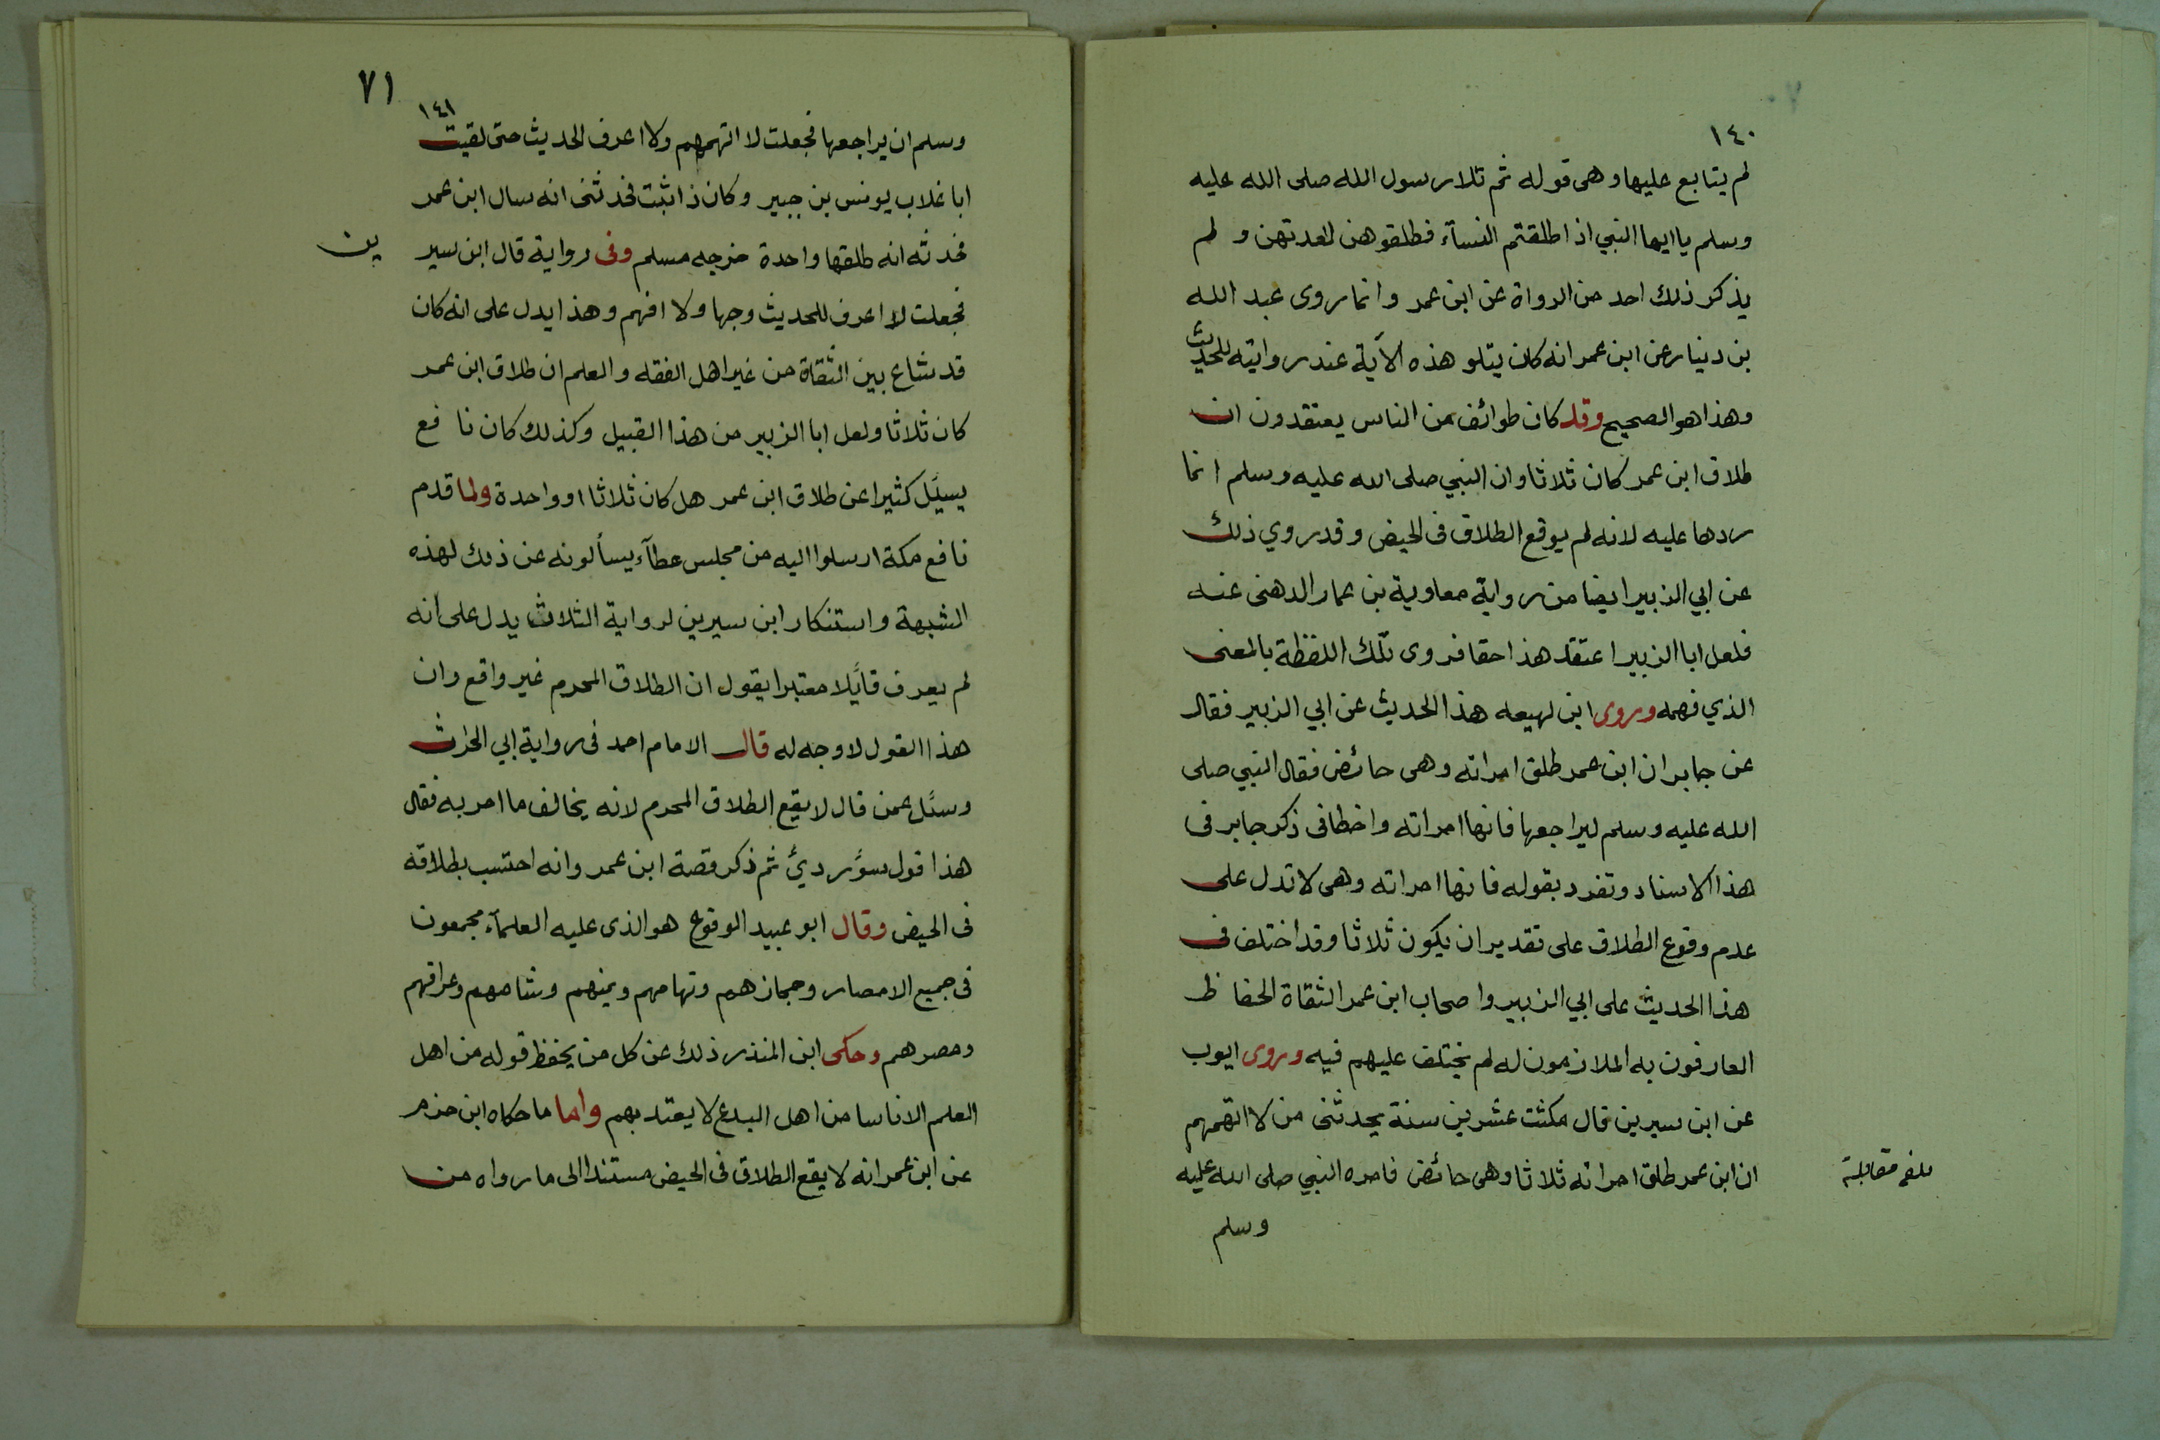 ٧٠
١٤٠
لم يتابع عليها وهى قوله ثم تلا رسول الله صلى الله عليه
وسلم يا ايها النبي اذا طلقتم النسآء فطلقوهن لعدتهن ولم
يذكر ذلك احد من الرواة عن ابن عمر وانما روى عبد الله
بن دينار عن ابن عمر انه كان يتلو هذه الآية عند روايته للحديث
وهذا هو الصحيح وقد كان طوائف من الناس يعتقدون ان
طلاق ابن عمر كان ثلاثا وان النبي صلى الله عليه وسلم انما
ردها عليه لانه لم يوقع الطلاق فى الحيض وقد روي ذلك
عن ابي الزبير ايضا من رواية معاوية بن عمار الدهنى عنه
فلعل ابا الزبير اعتقد هذا حقا فروى تلك اللفظة بالمعنى
الذي فهمه وروى ابن لهيعه هذا الحديث عن ابي الزبير فقال
عن جابر ان ابن عمر طلق امراته وهى حائض فقال النبي صلى
الله عليه وسلم ليراجعها فانها امراته واخطا فى ذكر جابر فى
هذا الاسناد وتفرد بقوله فانها امراته وهى لا تدل على
عدم وقوع الطلاق على تقدير ان يكون ثلاثا وقد اختلف فى
هذا الحديث على ابي الزبير واصحاب ابن عمر الثقاة الحفاظ
العارفون به الملازمون له لم يختلف عليهم فيه وروى ايوب
عن ابن سيرين قال مكثت عشرين سنة يحدثنى من لا اتهمهم
ان ابن عمر طلق امراته ثلاثا وهى حائض فامره النبي صلى الله عليه
بلغ مقابلة
وسلم
٧١
١٤١
وسلم ان يراجعها فجعلت لا اتهمهم ولا اعرف الحديث حتى لقيت
ابا غلاب يونس بن جبير وكان ذا ثبت فحدثنى انه سال ابن عمر
فحدثه انه طلقها واحدة خرجه مسلم وفى رواية قال ابن سير
ين
فجعلت لا اعرف للحديث وجها ولا افهم وهذا يدل على انه كان
قد شاع بين الثقاة من غير اهل الفقه والعلم ان طلاق ابن عمر
كان ثلاثا ولعل ابا الزبير من هذا القبيل وكذلك كان نافع
يسيئل كثيرا عن طلاق ابن عمر هل كان ثلاثا او واحدة ولما قدم
نافع مكة ارسلوا اليه من مجلس عطآء يسألونه عن ذلك لهذه
الشبهة واستنكار ابن سيرين لرواية الثلاث يدل على انه
لم يعرف قايلا معتبرا يقول ان الطلاق المحرم غير واقع وان
هذا القول لا وجه له قال الامام احمد فى رواية ابي الحارث
وسئل عمن قال لا يقع الطلاق المحرم لانه يخالف ما امر به فقال
هذا قول سوء ردئ ثم ذكر قصة ابن عمر وانه احتسب بطلاقه
فى الحيض وقال ابو عبيد الوقوع هو الذى عليه العلمآء مجمعون
فى جميع الامصار وحجازهم وتهامهم ويمنهم وشامهم وعراقهم
ومصرهم وحكى ابن المنذر ذلك عن كل من يحفظ قوله من اهل
العلم الا ناسا من اهل البدع لا يعتد بهم واما ما حكاه ابن حزم
عن ابن عمر انه لا يقع الطلاق فى الحيض مستندا الى ما رواه من